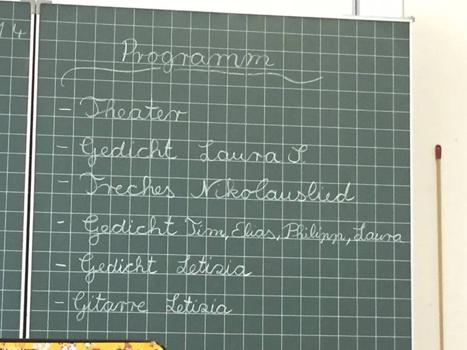 14
Programm
- Theater
- Gedicht Laura S.
- Freches Nikolauslied
- Gedicht Tim, Elias, Philipp, Laura
- Gedicht Letizia
- Gitarre Letizia